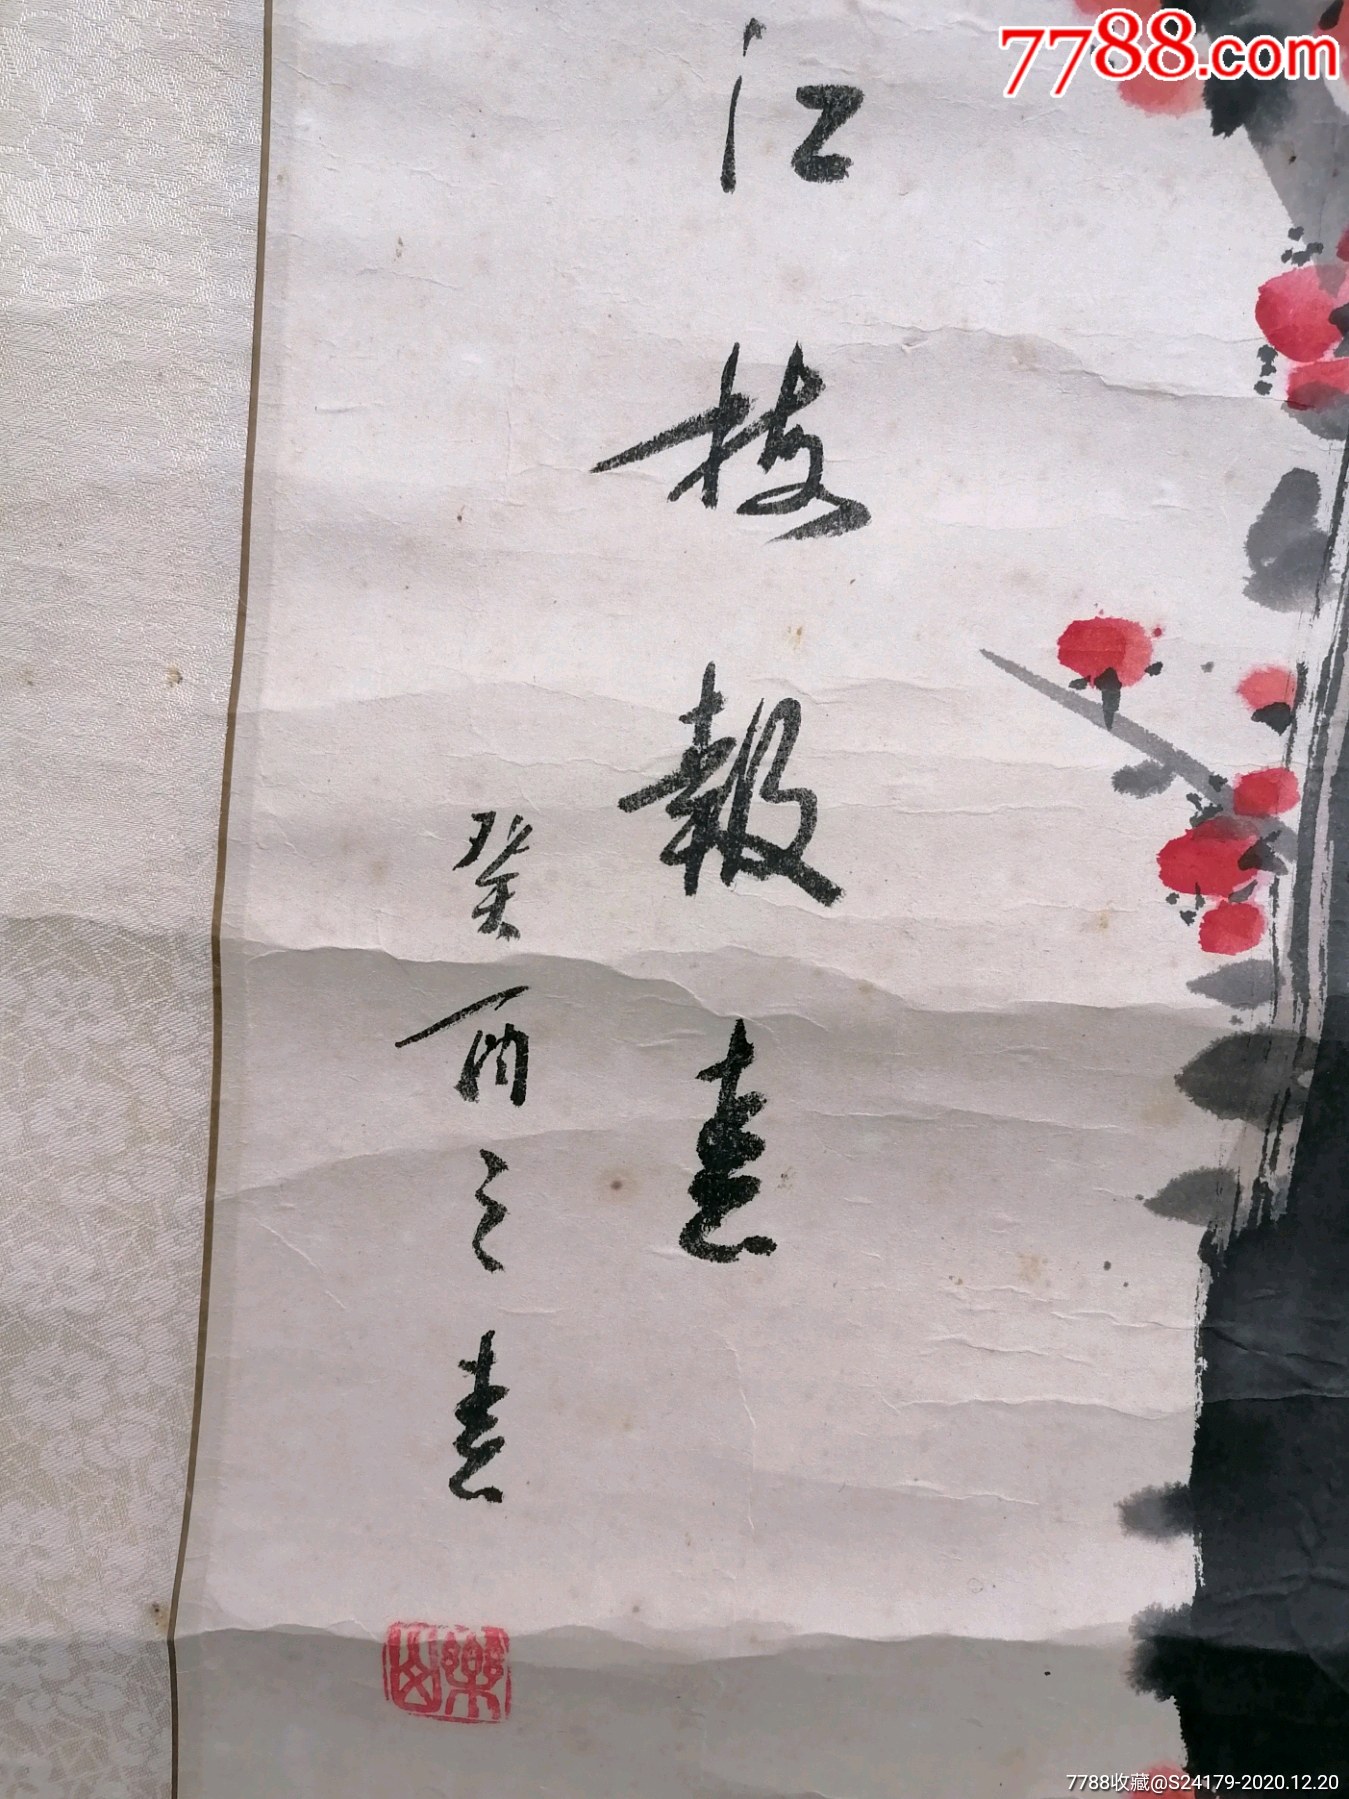 7788.com
红梅報春
癸酉之春
7788收藏@S24179-2020.12.20